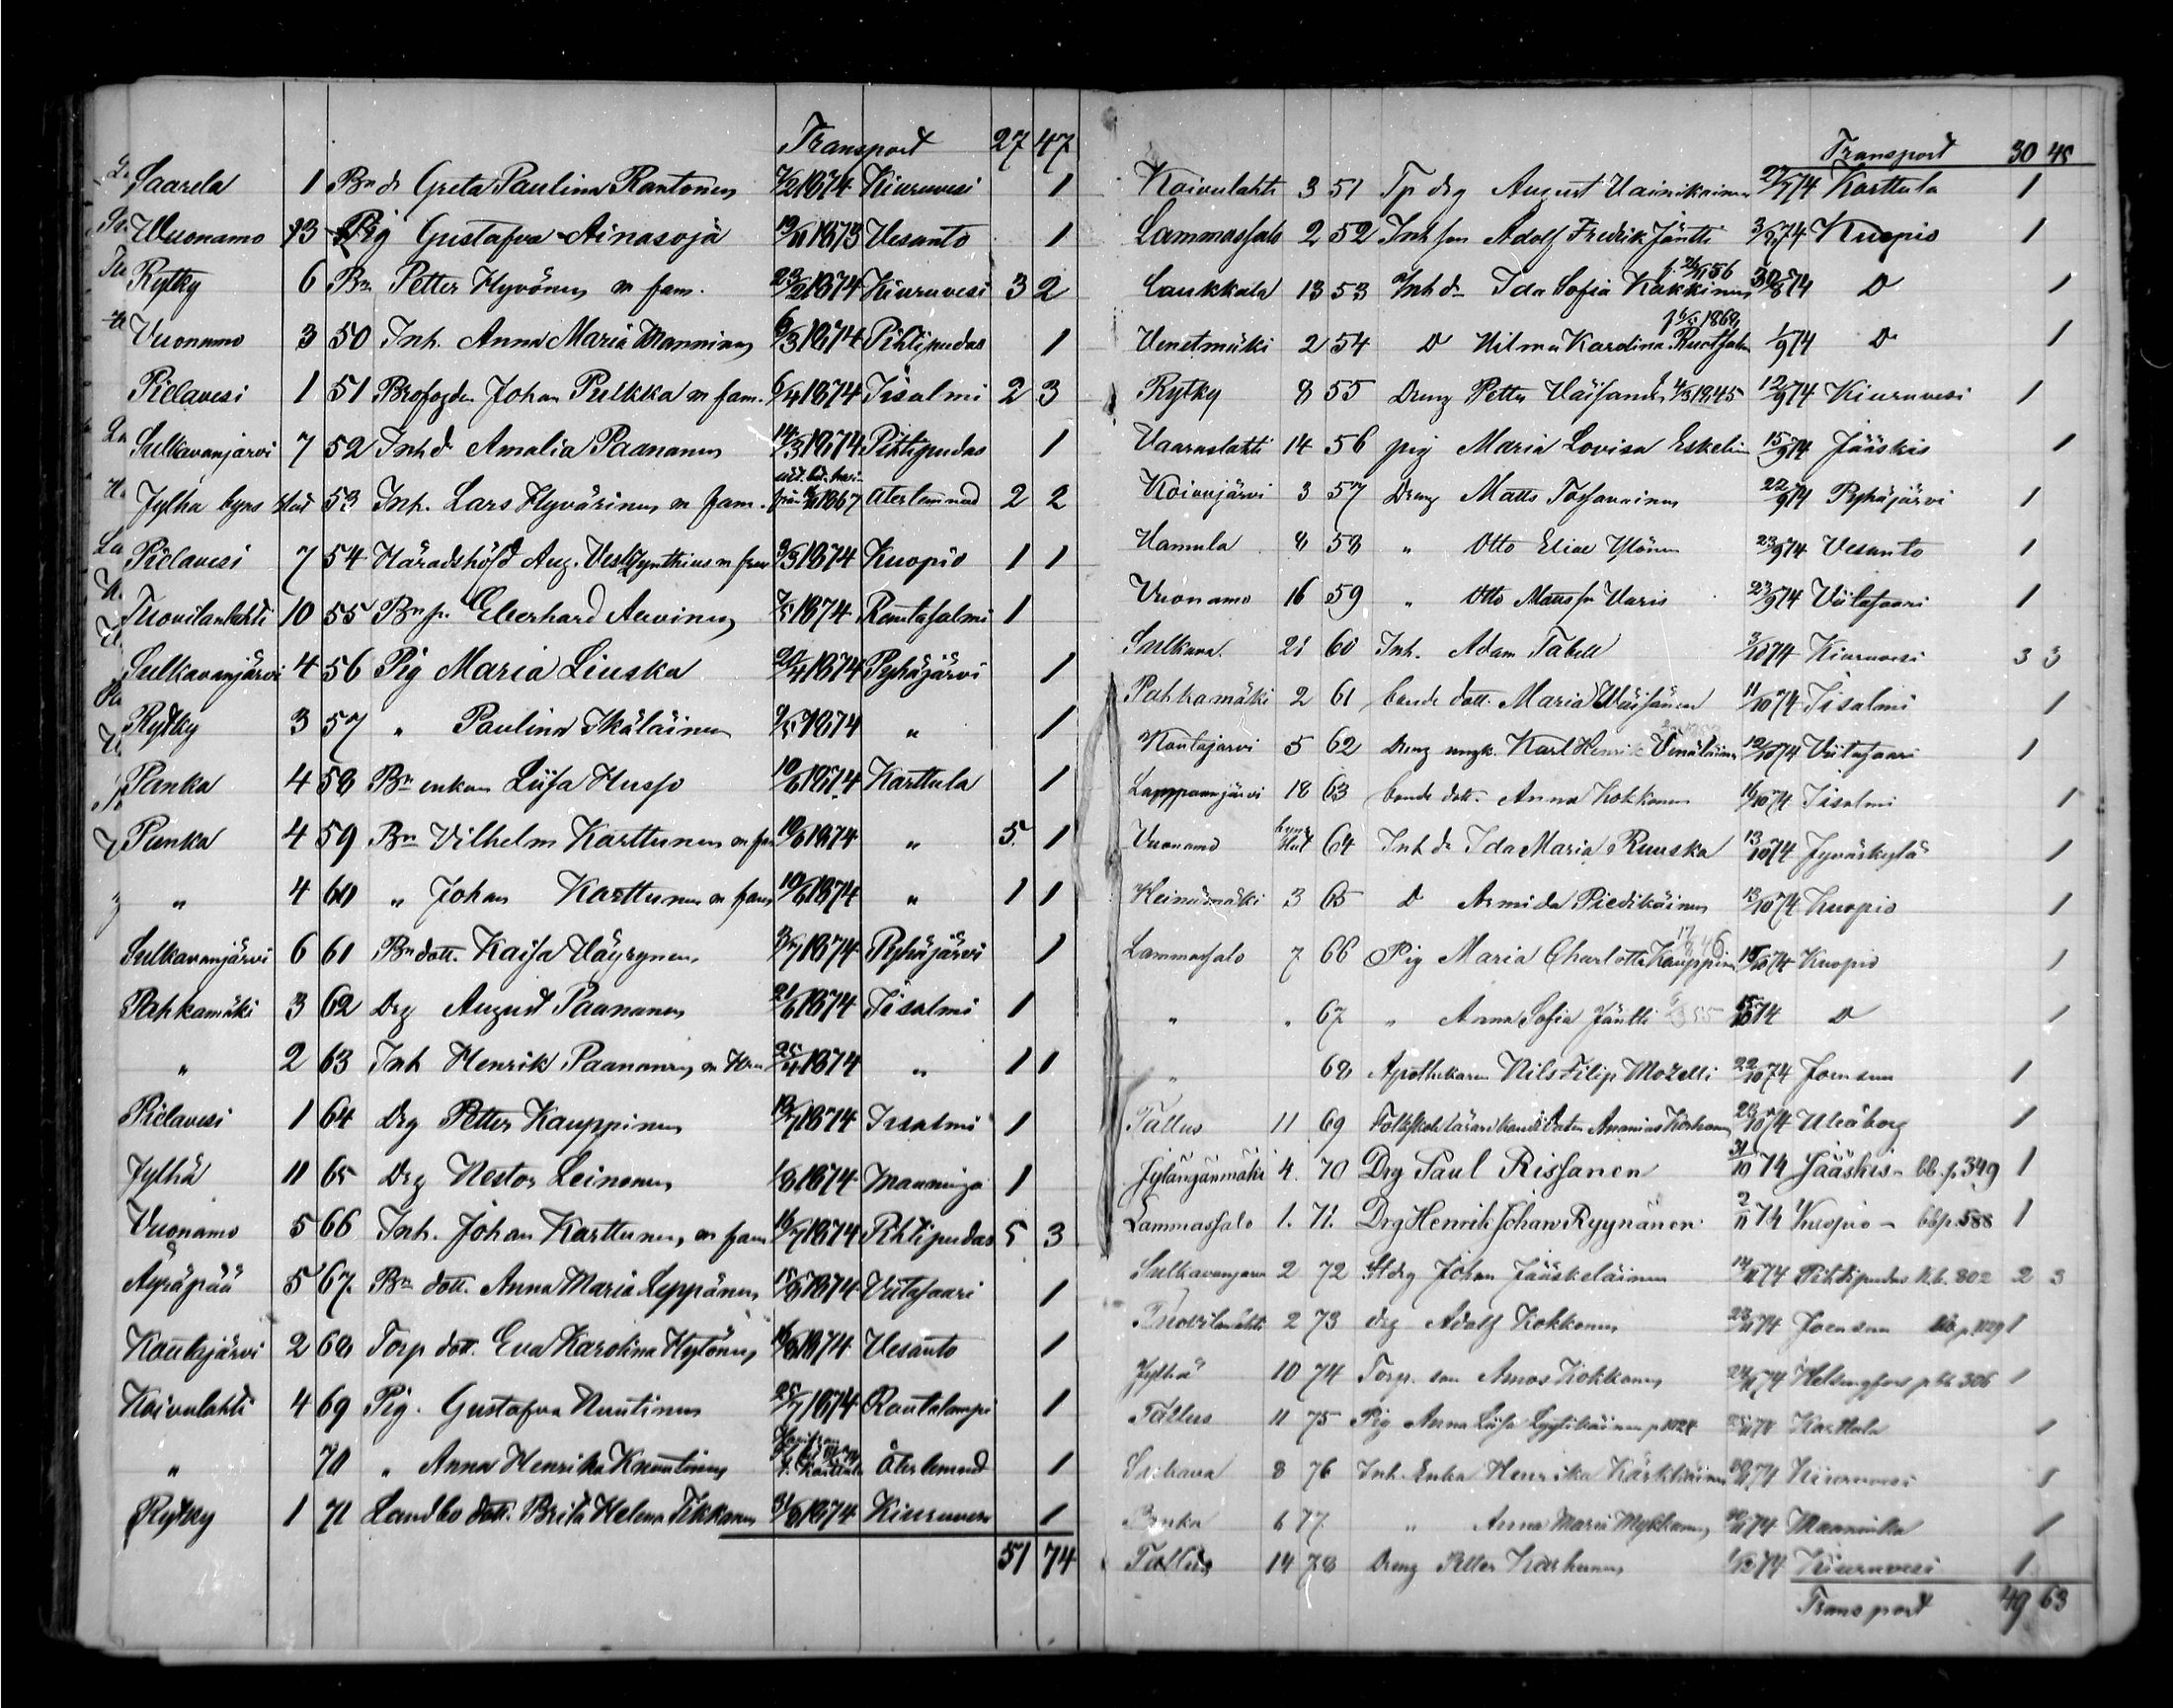 Transport 27 47
Saarela 1 Bn dr Greta Paulina Rantonen 7/2 1874 Kiuruvesi 1
Wuonamo 13 Pig Gustafva Ainasoja 1873 Vesanto 1
Rytky 6 Bn Petter Hyvönen m fam. 23/2 1874 Kiuruvesi 3 2
Vuonamo 3 50 Inh. Anna Maria Manninen 6/3 1874 Pihtipudas 1
Pielavesi 1 51 Brofogden Johan Pulkka m fam. 6/4 1874 Iisalmi 2 3
Sulkavanjärvi 7 52 Inh dr Amalia Paananen 14/3 1874 Pihtipudas 1
Jylhä byns Hus 53 Inh. Lars Hyvärinen m fam. 1867 återlemnad 2 2
Pielavesi 7 54 Häradshöfd Aug. Zynthius m fru 1874 Kuopio 1 1
Tuovilanlahti 10 55 Bn Eberhard Auvinen 1874 Rantasalmi 1
Sulkavanjärvi 4 56 Pig Maria Liuska 20/4 1874 Pyhäjärvi 1
Rytky 3 57 " Paulina Ikäläinen 1874 " 1
Panka 4 58 Bn enkan Liisa Husso 10/6 1874 Karttula 1
Panka 4 59 Bn Vilhelm Karttunen m fam 10/6 1874 " 5 1
" 4 60 " Johan Karttunen m fam 10/6 1874 " 1 1
Sulkavanjärvi 6 61 Bn dott. Kaisa Väyrynen 3/7 1874 Pyhäjärvi 1
Pahkamäki 3 62 Drg August Paananen 1874 Iisalmi 1
" 2 63 Inh Henrik Paananen m 1874 " 1 1
Pielavesi 1 64 Drg Petter Kauppinen 1874 Iisalmi 1
Jylhä 11 65 Drg Nestor Leinonen 1/8 1874 Maaninga 1
Vuonamo 5 66 Inh. Johan Karttunen, m fam 16/7 1874 Pihtipudas 5 3
Äyräpää 5 67 Bn dott. Anna Maria Leppänen 1874 Viitasaari 1
Koutajärvi 2 68 Torp dott. Eva Karolina Hytönen 1874 Vesanto 1
Koivulahti 4 69 Pig. Gustafva Nuutinen 25/7 1874 Rautalampi 1
" 70 " Anna Henrika Knuutinen återlemnad 1
Rytky 1 71 Landbo dott. Brita Helena Tikkanen 31/8 1874 Kiuruvesi 1
51 74
Transport 30 45
Koivulahti 3 51 Tp drg August Vainikainen 74 Karttula 1
Lammassalo 2 52 Inh son Adolf Fredrik Jäntti 74 Kuopio 1
Laukkala 13 53 Inh dr Ida Sofia Kakkinen 30/8 74 D 1
Venetmäki 2 54 D Vilma Karolina Ruotsaln 1/9 74 D 1
Rytky 8 55 Dreng Petter Väisänen 1845 12/9 74 Kiuruvesi 1
Vaaraslahti 14 56 pig Maria Lovisa Eskelin 15/9 74 Jääskis 1
Koivujärvi 3 57 Dreng Matts Tossavainen 22/9 74 Pyhäjärvi 1
Hamula 8 58 " Otto Elias Ylönen 23/9 74 Vesanto 1
Vuonamo 16 59 " Otto Matssn Varis 23/9 74 Viitasaari 1
Sulkava 21 60 Inh. Adam Tabell 3/10 74 Kiuruvesi 3 3
Pahkamäki 2 61 bonde dott. Maria Wäisänen 11/10 74 Iisalmi 1
Koutajärvi 5 62 Dreng Karl Henrik Venäläinen 12/10 74 Viitasaari 1
Lappaanjärvi 18 63 bonde dott. Anna Kokkonen 16/10 74 Iisalmi 1
Vuonamo byns Hus 64 Inh dr Ida Maria Ruuska 13/10 74 Jyväskylä 1
Heinämäki 3 65 D Armida Piedikäinen 13/10 74 Kuopio 1
Lammassalo 7 66 Pig Maria Charlotta Kauppinen 10 74 Kuopio 1
" " 67 " Anna Sofia Jäntti 74 D 1
" 68 Apothekaren Nils Filip Mozelli 22/10 74 Joensuu 1
Tallus 11 69 Ananias Korhonen 74 Uleåborg 1
Jylängänmäki 4. 70 Drg Paul Rissanen 31/10 74 Jääskis bb. p. 349 1
Lammassalo 1. 71. Drg Henrik Johan Ryynänen 2/11 74 Kuopio bb p. 588 1
Sulkavanjärvi 2 72 Johan Jääskeläinen 74 Pihtipudas k.b. 802 2 3
Tuovilanlahti 2 73 drg Adolf Kokkonen 74 Joensuu 1
Jylhä 10 74 Torp. son Amos Kokkonen 24/11 74 Helsingfors p bb 306 1
Tallus 11 75 Pig Anna Liisa Lyytikäinen 74 Karttula 1
Saihava 8 76 Inh. Enka Henrika Kärkkäinen 74 Kiuruvesi 1
Panka 6 77 " Anna Maria Mykkänen 74 Maaninka 1
Tallus 14 78 Dreng Petter Karhunen 1/12 74 Kiuruvesi 1
Transport 49 63